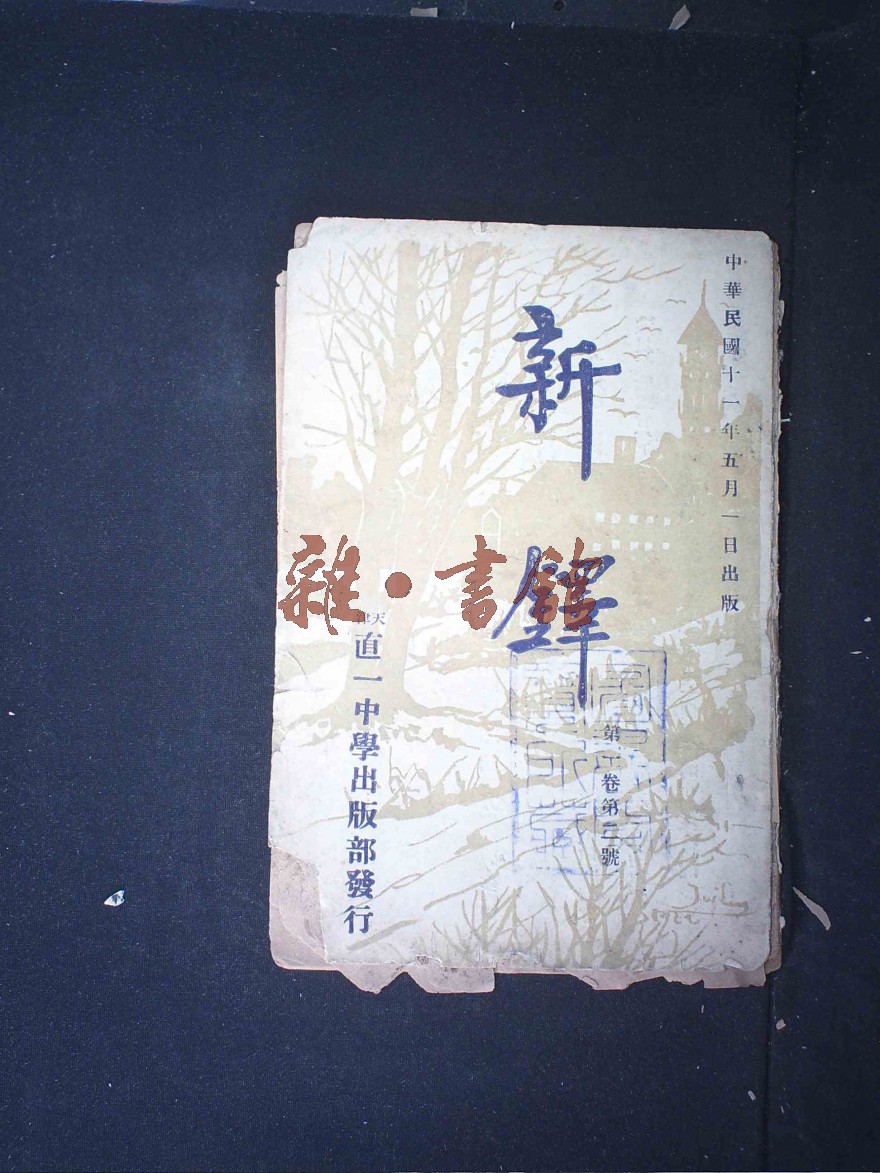 中華民國十一年五月一日出版
新鐸
第二卷第三號
天津
直一中學出版部發行
雜·書館
1922